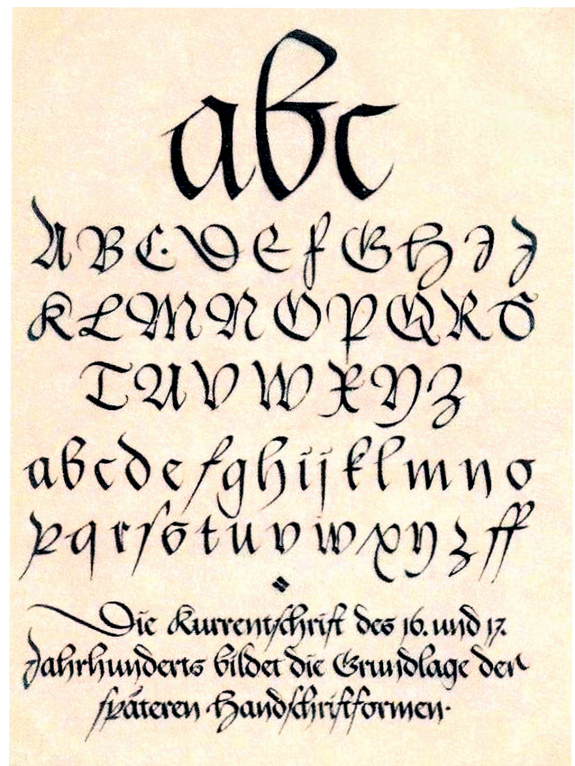 abc
A B C D E F G H I J
K L M N O P Q R S
T U V W X Y Z
a b c d e f g h i j k l m n o
p q r ſ s t u v w x y z ff
Die Kurrentſchrift des 16. und 17.
Jahrhunderts bildet die Grundlage der
ſpäteren Handſchriftformen.